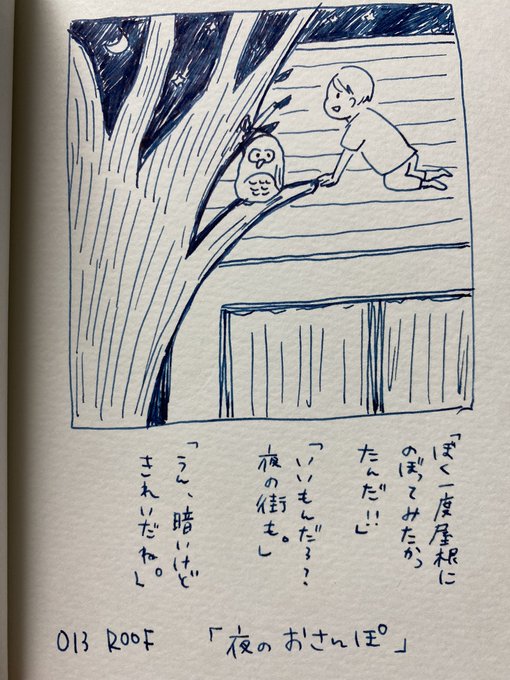 「ぼく一度屋根に
のぼってみたかっ
たんだ!!」
「いいもんだろ?
夜の街も。」
「うん、暗いけど
きれいだね。」
013 ROOF 「夜のおさんぽ」